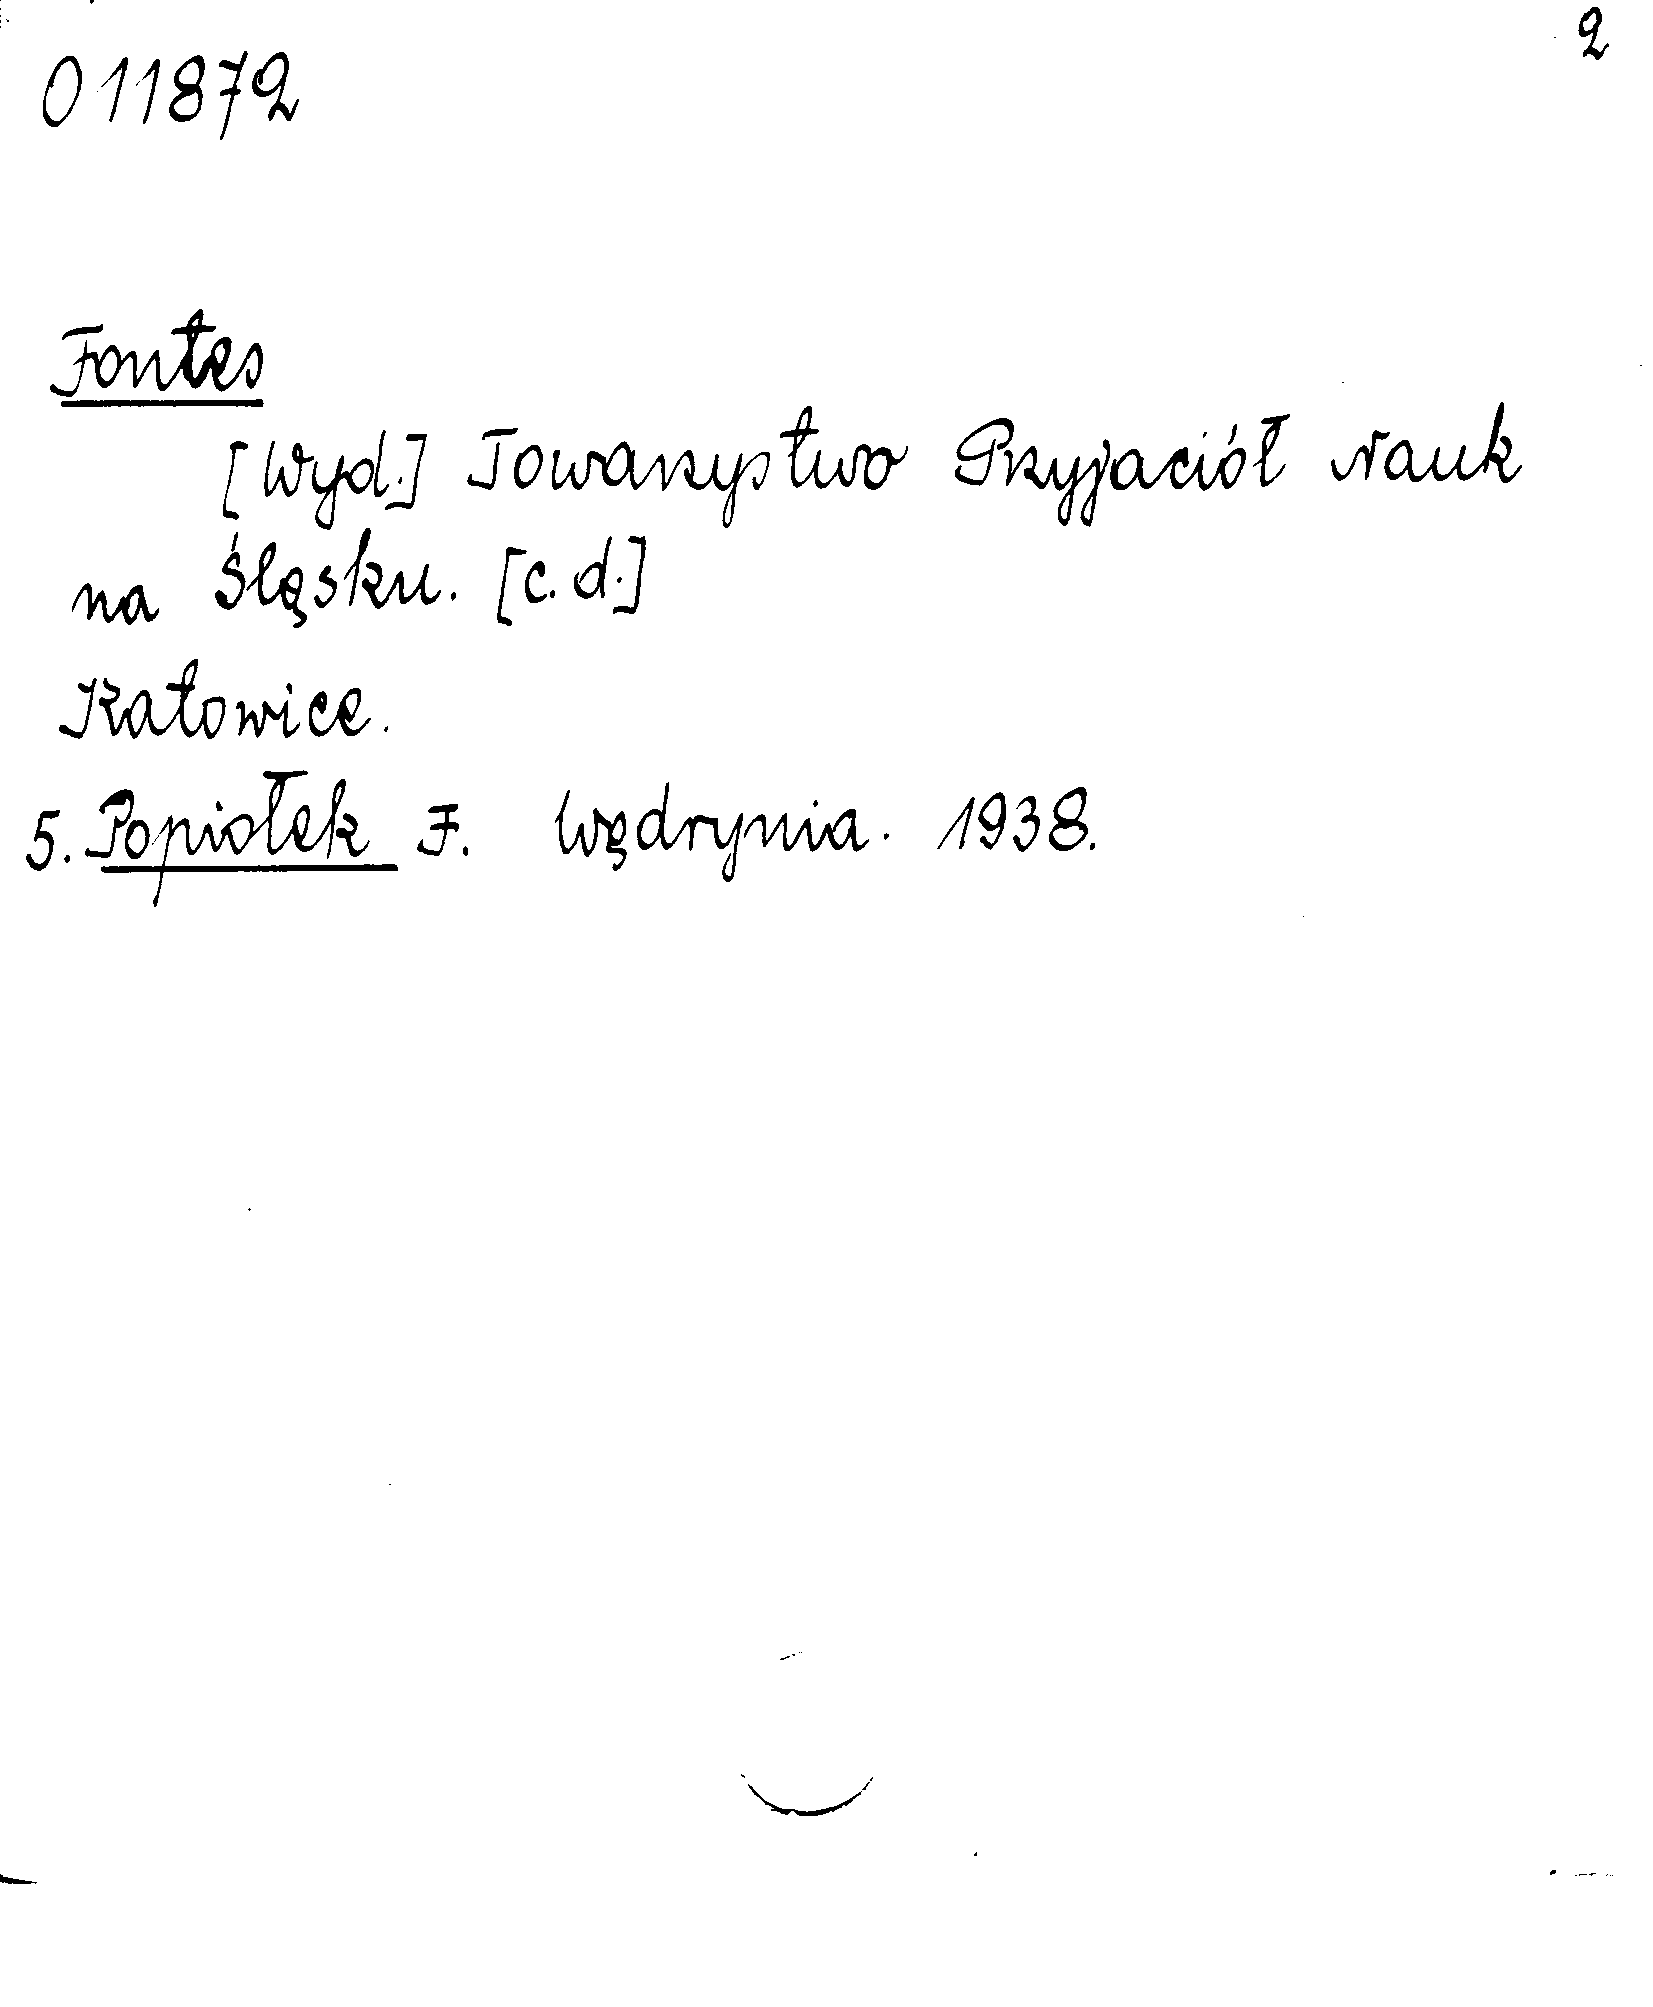 2
011872
Fontes
[Wyd.] Towarzystwo Przyjaciół Nauk
na Śląsku. [c.d.]
Katowice.
5. Popiołek F. Wędrynia. 1938.